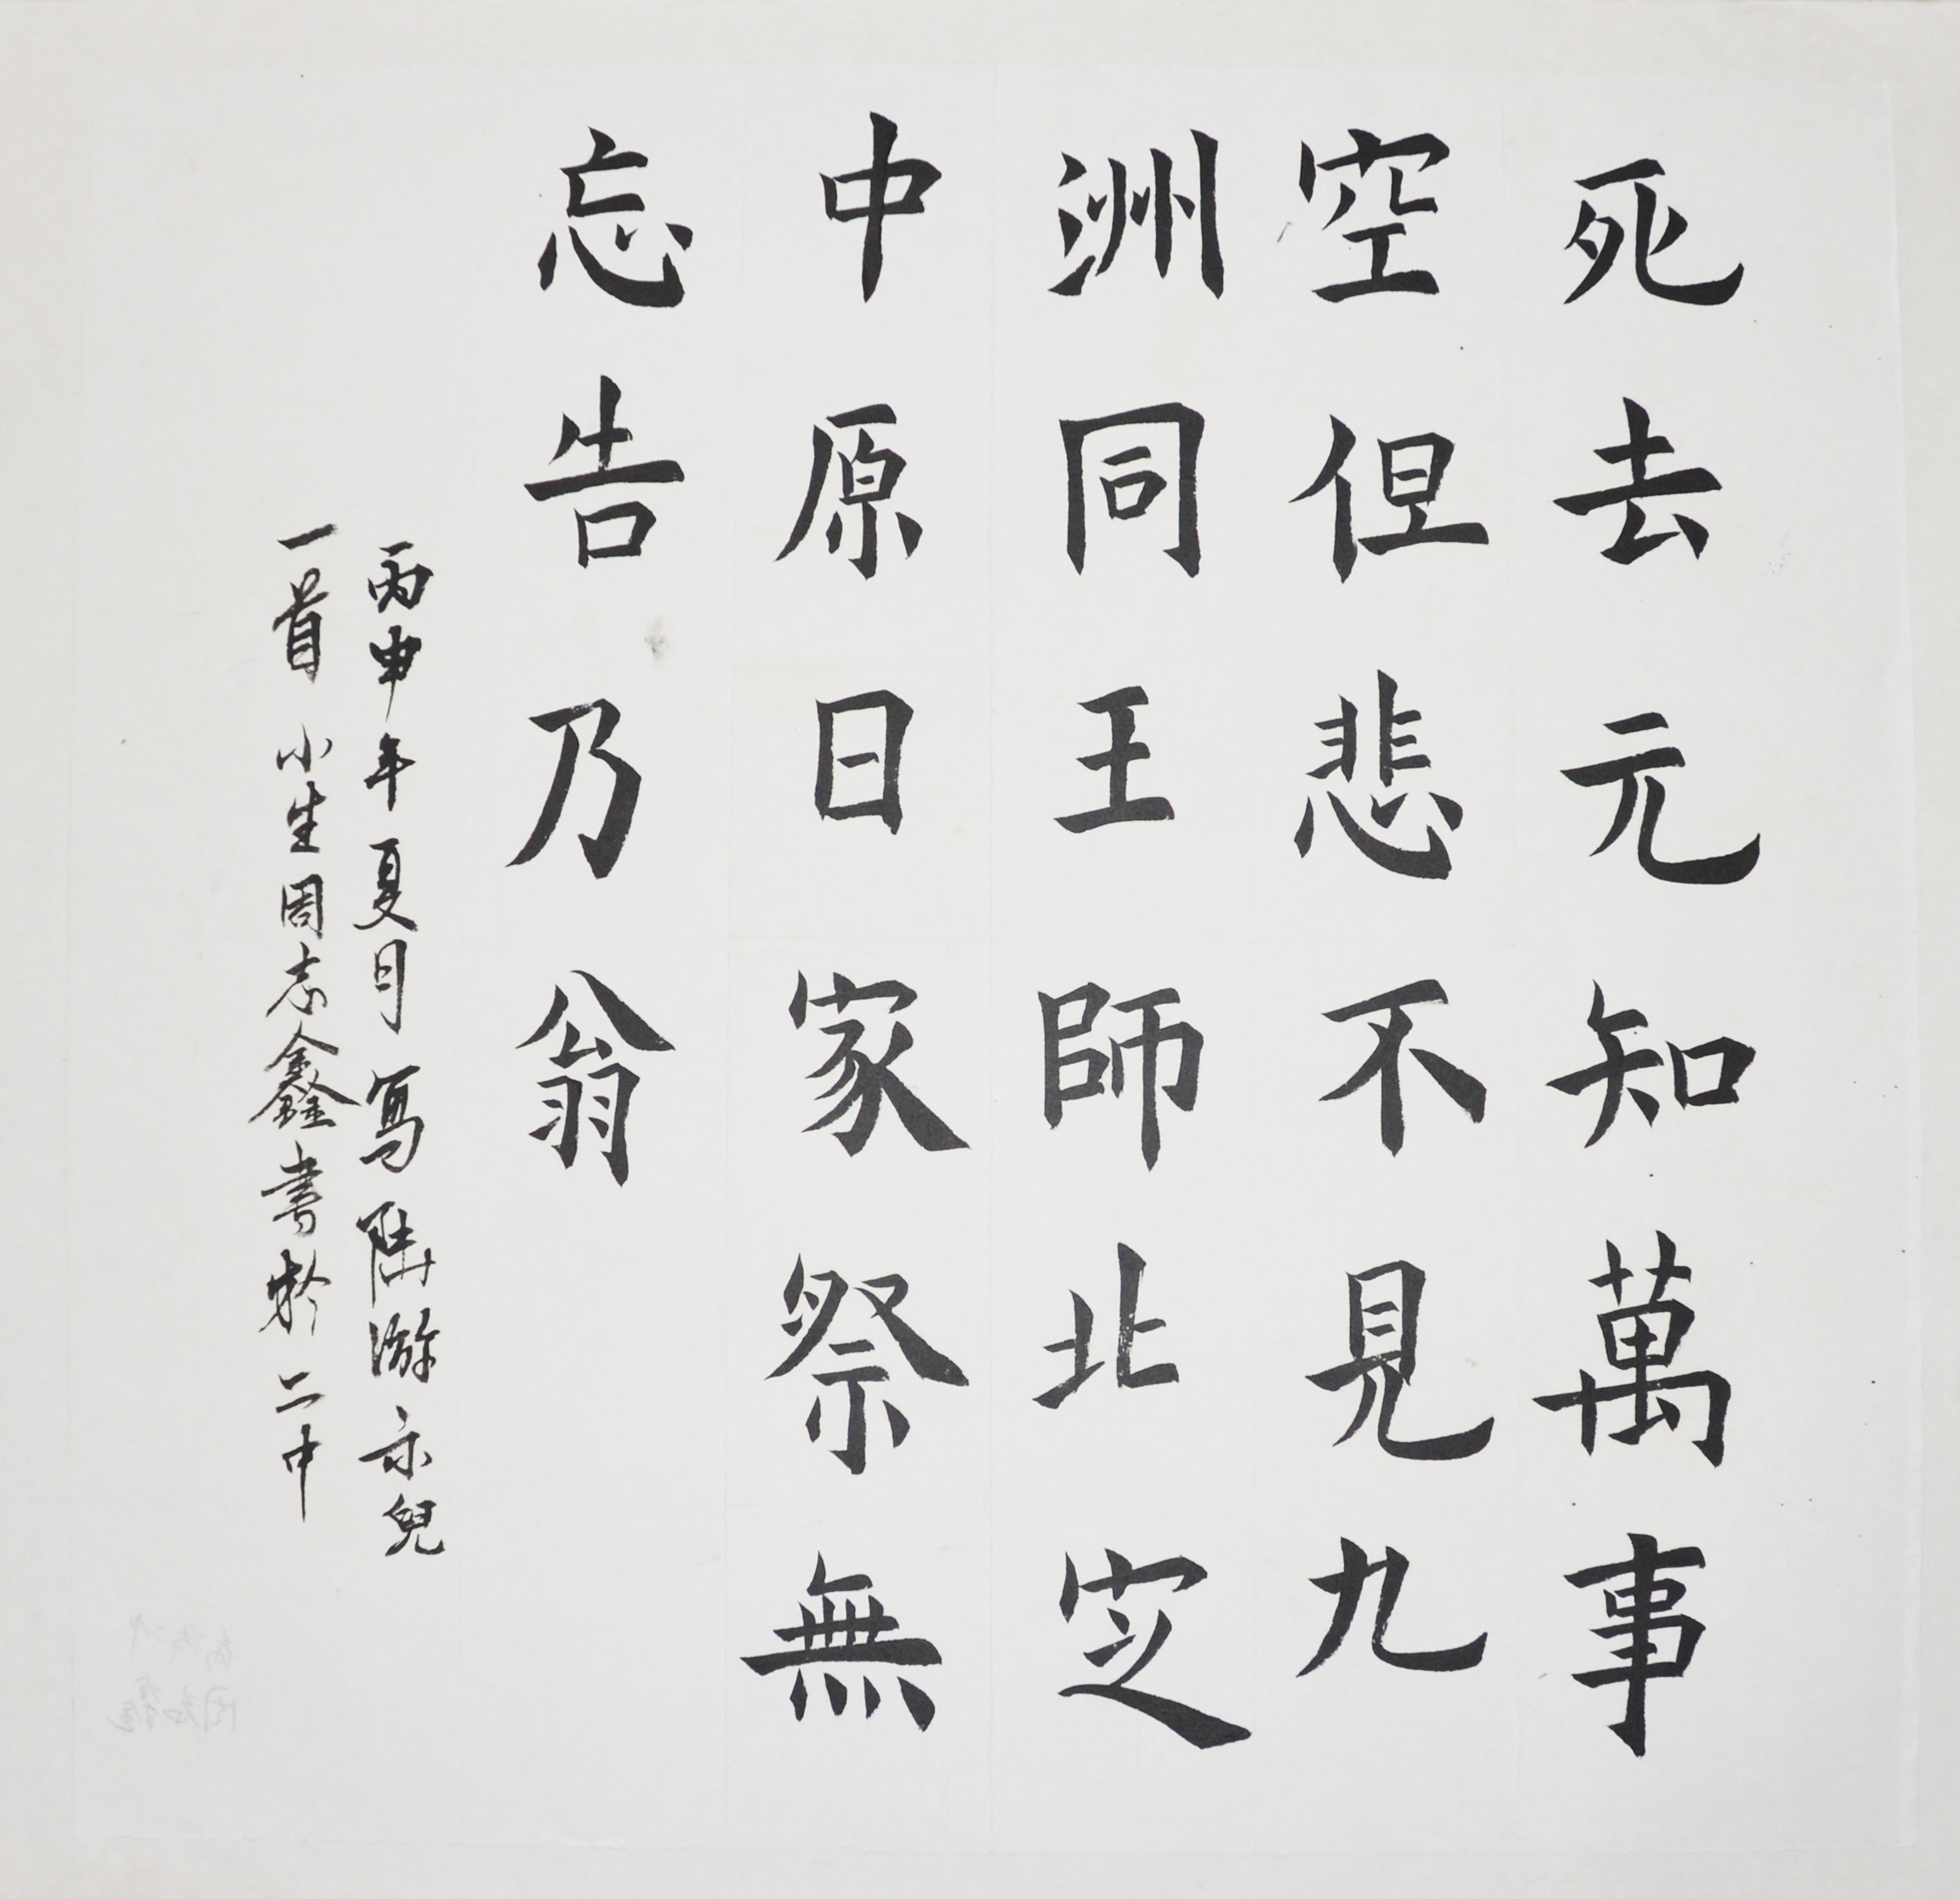 死去元知萬事
空但悲不見九
洲同王師北定
中原日家祭無
忘告乃翁
丙申年夏月寫陸游示兒
一首 小生周志鑫書於二中